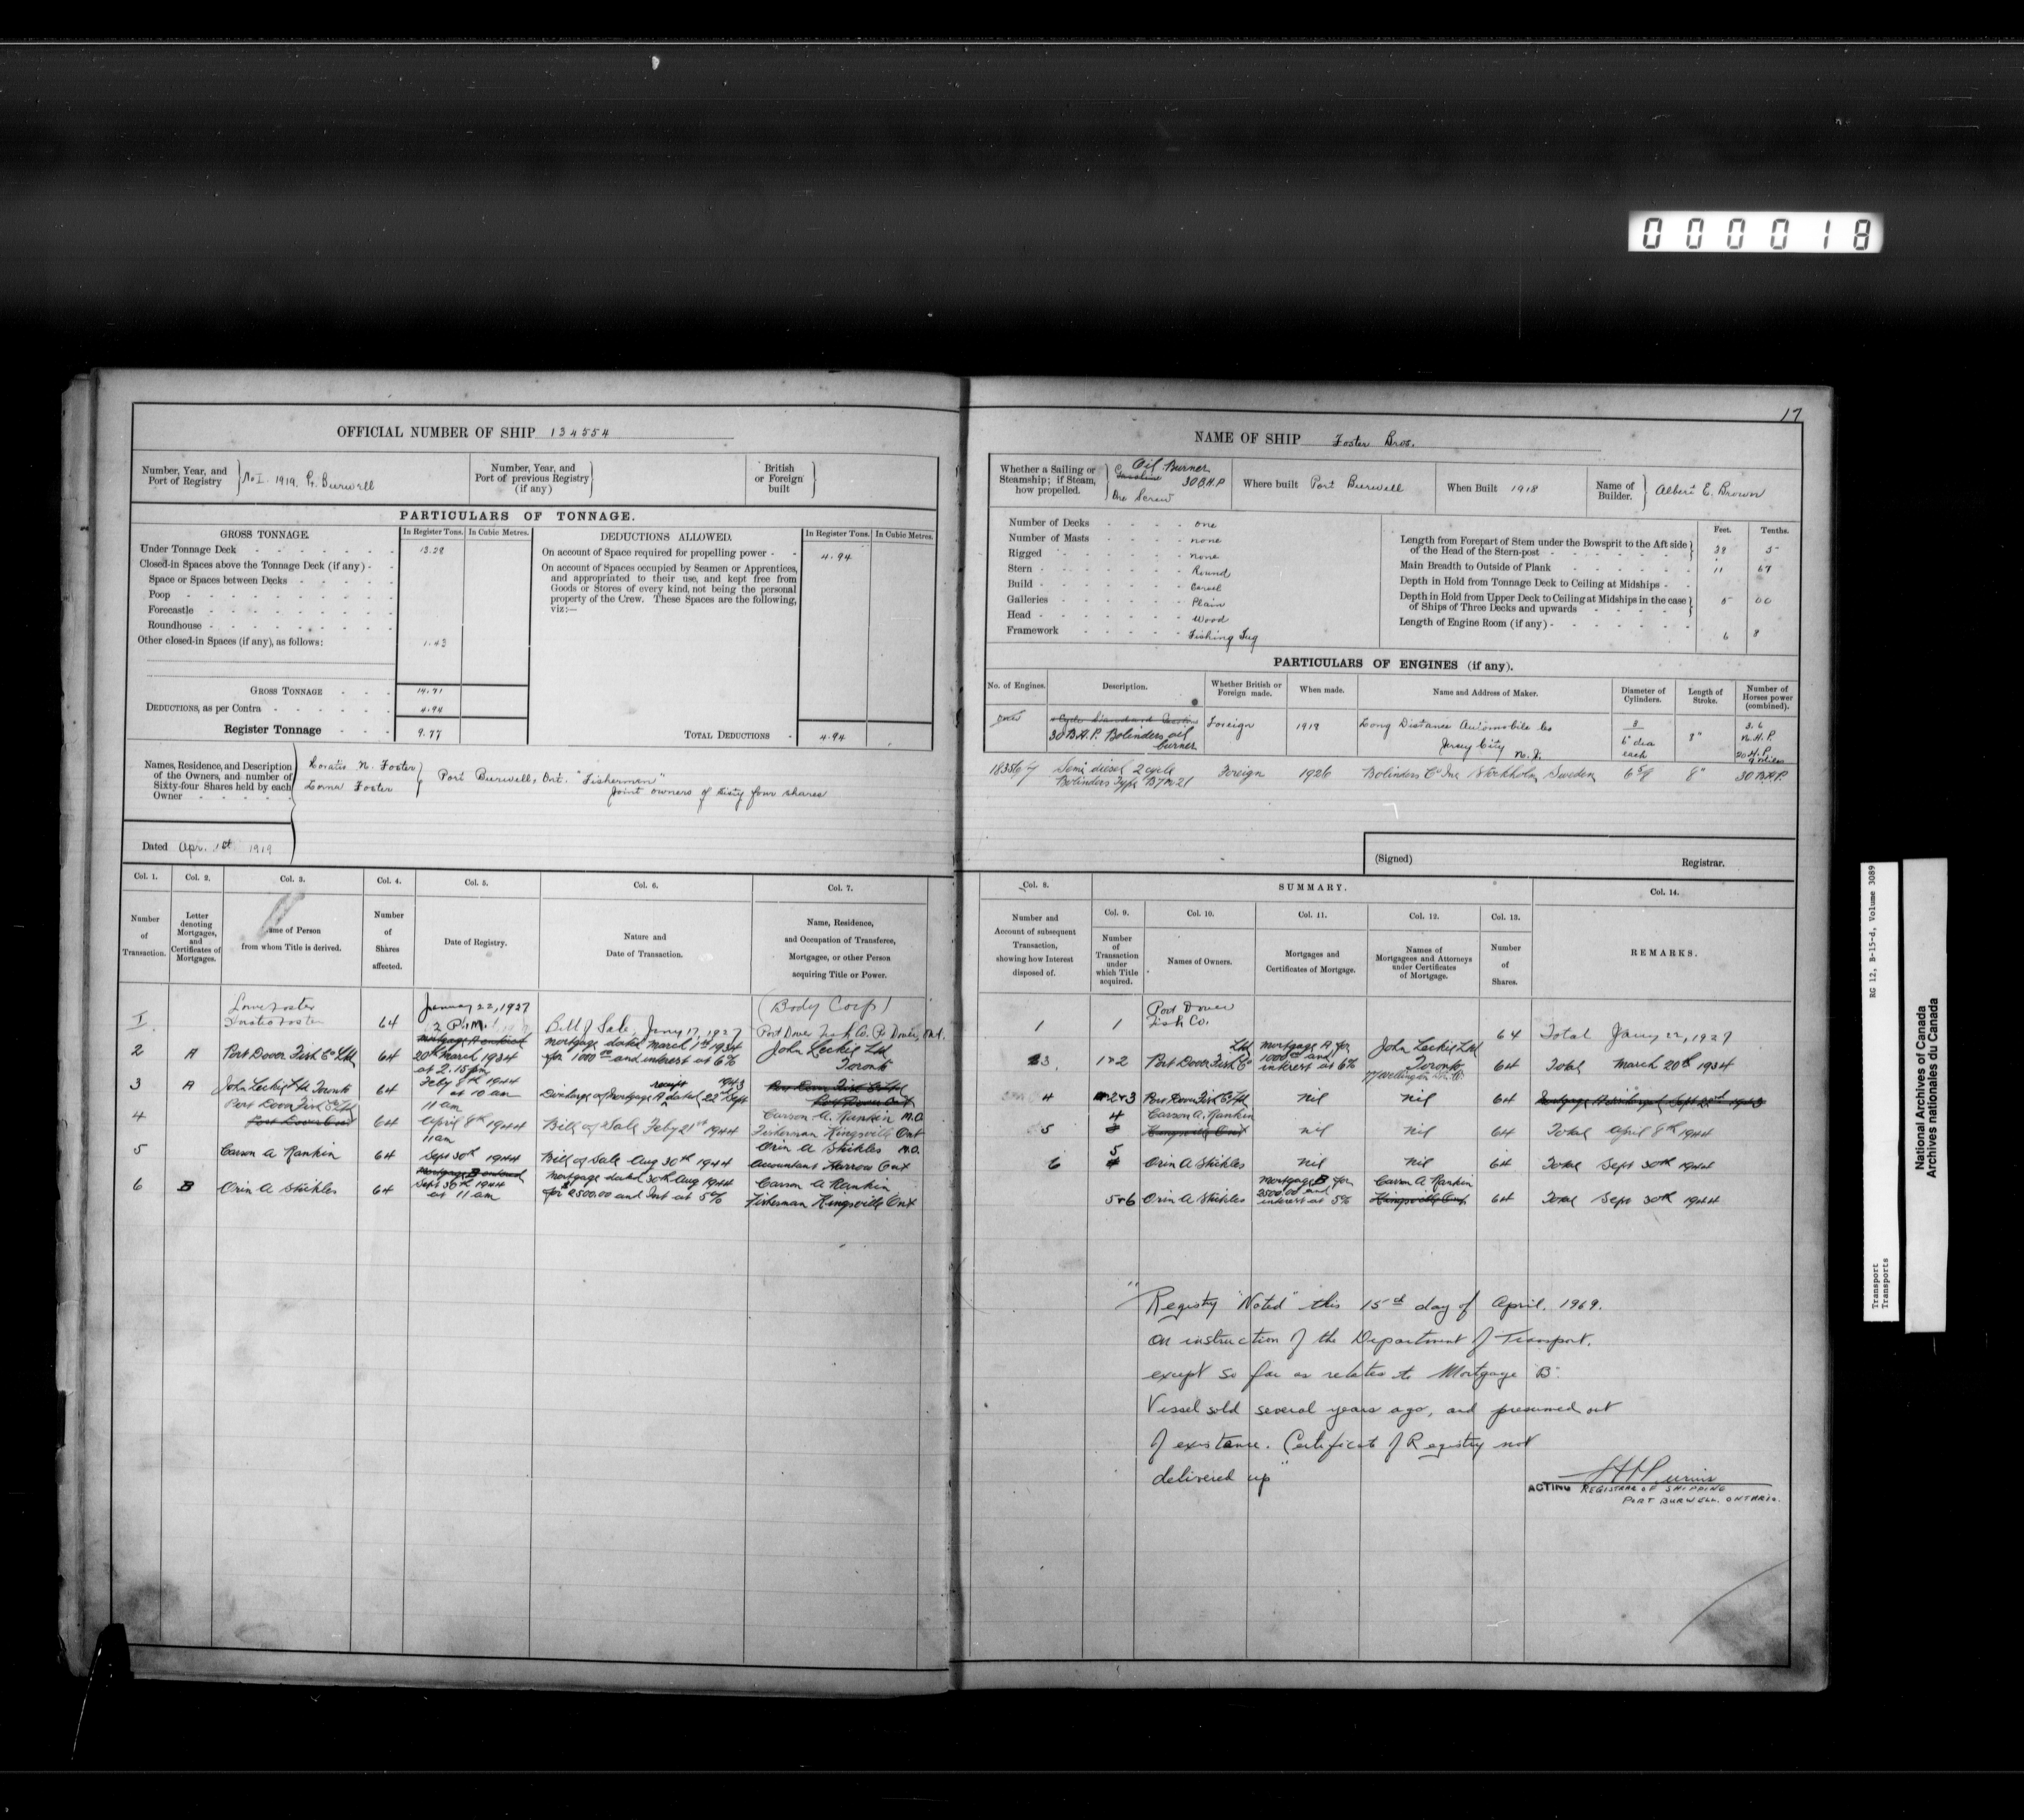 000018
17
OFFICIAL NUMBER OF SHIP 134554
Number, Year, and Port of Registry } No I. 1919. Pt. Burwell
Number, Year, and Port of previous Registry (if any) }
British or Foreign built }
PARTICULARS OF TONNAGE.
GROSS TONNAGE. In Register Tons. In Cubic Metres.
Under Tonnage Deck
Closed-in Spaces above the Tonnage Deck (if any)
Space or Spaces between Decks
Poop
Forecastle
Roundhouse
Other closed-in Spaces (if any), as follows: 1.43
GROSS TONNAGE
DEDUCTIONS, as per Contra 4.94
Register Tonnage 9.77
DEDUCTIONS ALLOWED. In Register Tons. In Cubic Metres.
On account of Space required for propelling power 4.94
On account of Spaces occupied by Seamen or Apprentices,
and appropriated to their use, and kept free from
Goods or Stores of every kind, not being the personal
property of the Crew. These Spaces are the following,
viz:—
TOTAL DEDUCTIONS 4.94
Names, Residence, and Description
of the Owners, and number of
Sixty-four Shares held by each
Owner
Horatio N. Foster
Lorna Foster
Port Burwell, Ont. "Fisherman"
Joint owners of sixty four shares
Dated Apr. 1st 1919
NAME OF SHIP Foster Bros.
Whether a Sailing or Steamship; if Steam, how propelled.
Oil Burner
Gasoline 30 B.H.P
One Screw
Where built Port Burwell
When Built 1918
Name of Builder. } Albert E. Brown
Number of Decks one
Number of Masts none
Rigged none
Stern Round
Build Carvel
Galleries Plain
Head Wood
Framework Fishing Tug
Feet. Tenths.
Length from Forepart of Stem under the Bowsprit to the Aft side
of the Head of the Stern-post 5
Main Breadth to Outside of Plank 11 67
Depth in Hold from Tonnage Deck to Ceiling at Midships
Depth in Hold from Upper Deck to Ceiling at Midships in the case
of Ships of Three Decks and upwards 5 00
Length of Engine Room (if any) 6 8
PARTICULARS OF ENGINES (if any).
No. of Engines. Description. Whether British or Foreign made. When made. Name and Address of Maker. Diameter of Cylinders. Length of Stroke. Number of Horses power (combined).
30 B.H.P. Bolinders oil burner Foreign 1919 Long Distance Automobile Co
Jersey City N.J.
6" dia each 8" 3.6 N.H.P.
Semi diesel 2 cycle Foreign 1926 Bolinders Co Inc Stockholm Sweden 8" 30 B.H.P.
Bolinders Type
(Signed) Registrar.
Col. 1. Col. 2. Col. 3. Col. 4. Col. 5. Col. 6. Col. 7.
Number of Transaction.
Letter denoting Mortgages, and Certificates of Mortgages.
Name of Person from whom Title is derived.
Number of Shares affected.
Date of Registry.
Nature and Date of Transaction.
Name, Residence, and Occupation of Transferee, Mortgagee, or other Person acquiring Title or Power.
I. Lorne Foster Horatio Foster 64 January 22, 1927 2 P.M. Bill of Sale, Jany 17, 1927 (Body Corp) Port Dover Fish Co. Pt. Dover, Ont.
2 A Port Dover Fish Co Ltd 64 Mortgage A entered 20th March 1934 at 2.15 pm mortgage dated March 1st 1934 for 1000.00 and interest at 6% John Leckie Ltd Toronto
3 A John Leckie Ltd Toronto 64 Feby 8th 1944 at 10 am Discharge of Mortgage A receipt dated 22nd Sept 1943 Port Dover Fish Co Ltd Port Dover Ont
4 Port Dover Fish Co Ltd Port Dover Ont 64 11 am April 8th 1944 Bill of Sale Feby 21st 1944 Carson A. Rankin M.O. Fisherman Kingsville Ont
5 Carson A Rankin 64 11 am Sept 30th 1944 Bill of Sale Aug 30th 1944 Orin A Stickles M.O. Accountant Harrow Ont
6 B Orin A Stickles 64 Mortgage B entered Sept 30th 1944 at 11 am Mortgage dated 30th Aug 1944 for $2500.00 and Int at 5% Carson A Rankin Fisherman Kingsville Ont
Col. 8. SUMMARY. Col. 14.
Number and Account of subsequent Transaction, showing how Interest disposed of.
Col. 9. Col. 10. Col. 11. Col. 12. Col. 13.
Number of Transaction under which Title acquired.
Names of Owners.
Mortgages and Certificates of Mortgage.
Names of Mortgagees and Attorneys under Certificates of Mortgage.
Number of Shares.
REMARKS.
1 1 Port Dover Fish Co. 64 Total Jany 22, 1927
3 1&2 Port Dover Fish Co Ltd Mortgage A for 1000.00 and interest at 6% John Leckie Ltd Toronto 64 Total March 20th 1934
4 2&3 Port Dover Fish Co Ltd nil nil 64
5 4 Carson A. Rankin Kingsville Ont nil nil 64 Total April 8th 1944
6 5 Orin A Stickles nil nil 64 Total Sept 30th 1944
5&6 Orin A Stickles Mortgage B for 2500.00 and interest at 5% Carson A Rankin Kingsville Ont 64 Total Sept 30th 1944
"Registry "Noted" this 15th day of April, 1969.
On instruction of the Department of Transport.
except so far as relates to Mortgage "B".
Vessel sold several years ago, and presumed out
of existence. Certificate of Registry not
delivered up"
ACTING REGISTRAR OF SHIPPING
PORT BURWELL, ONTARIO.
RG 12, B-15-d, Volume 3089
Transport
Transports
National Archives of Canada
Archives nationales du Canada